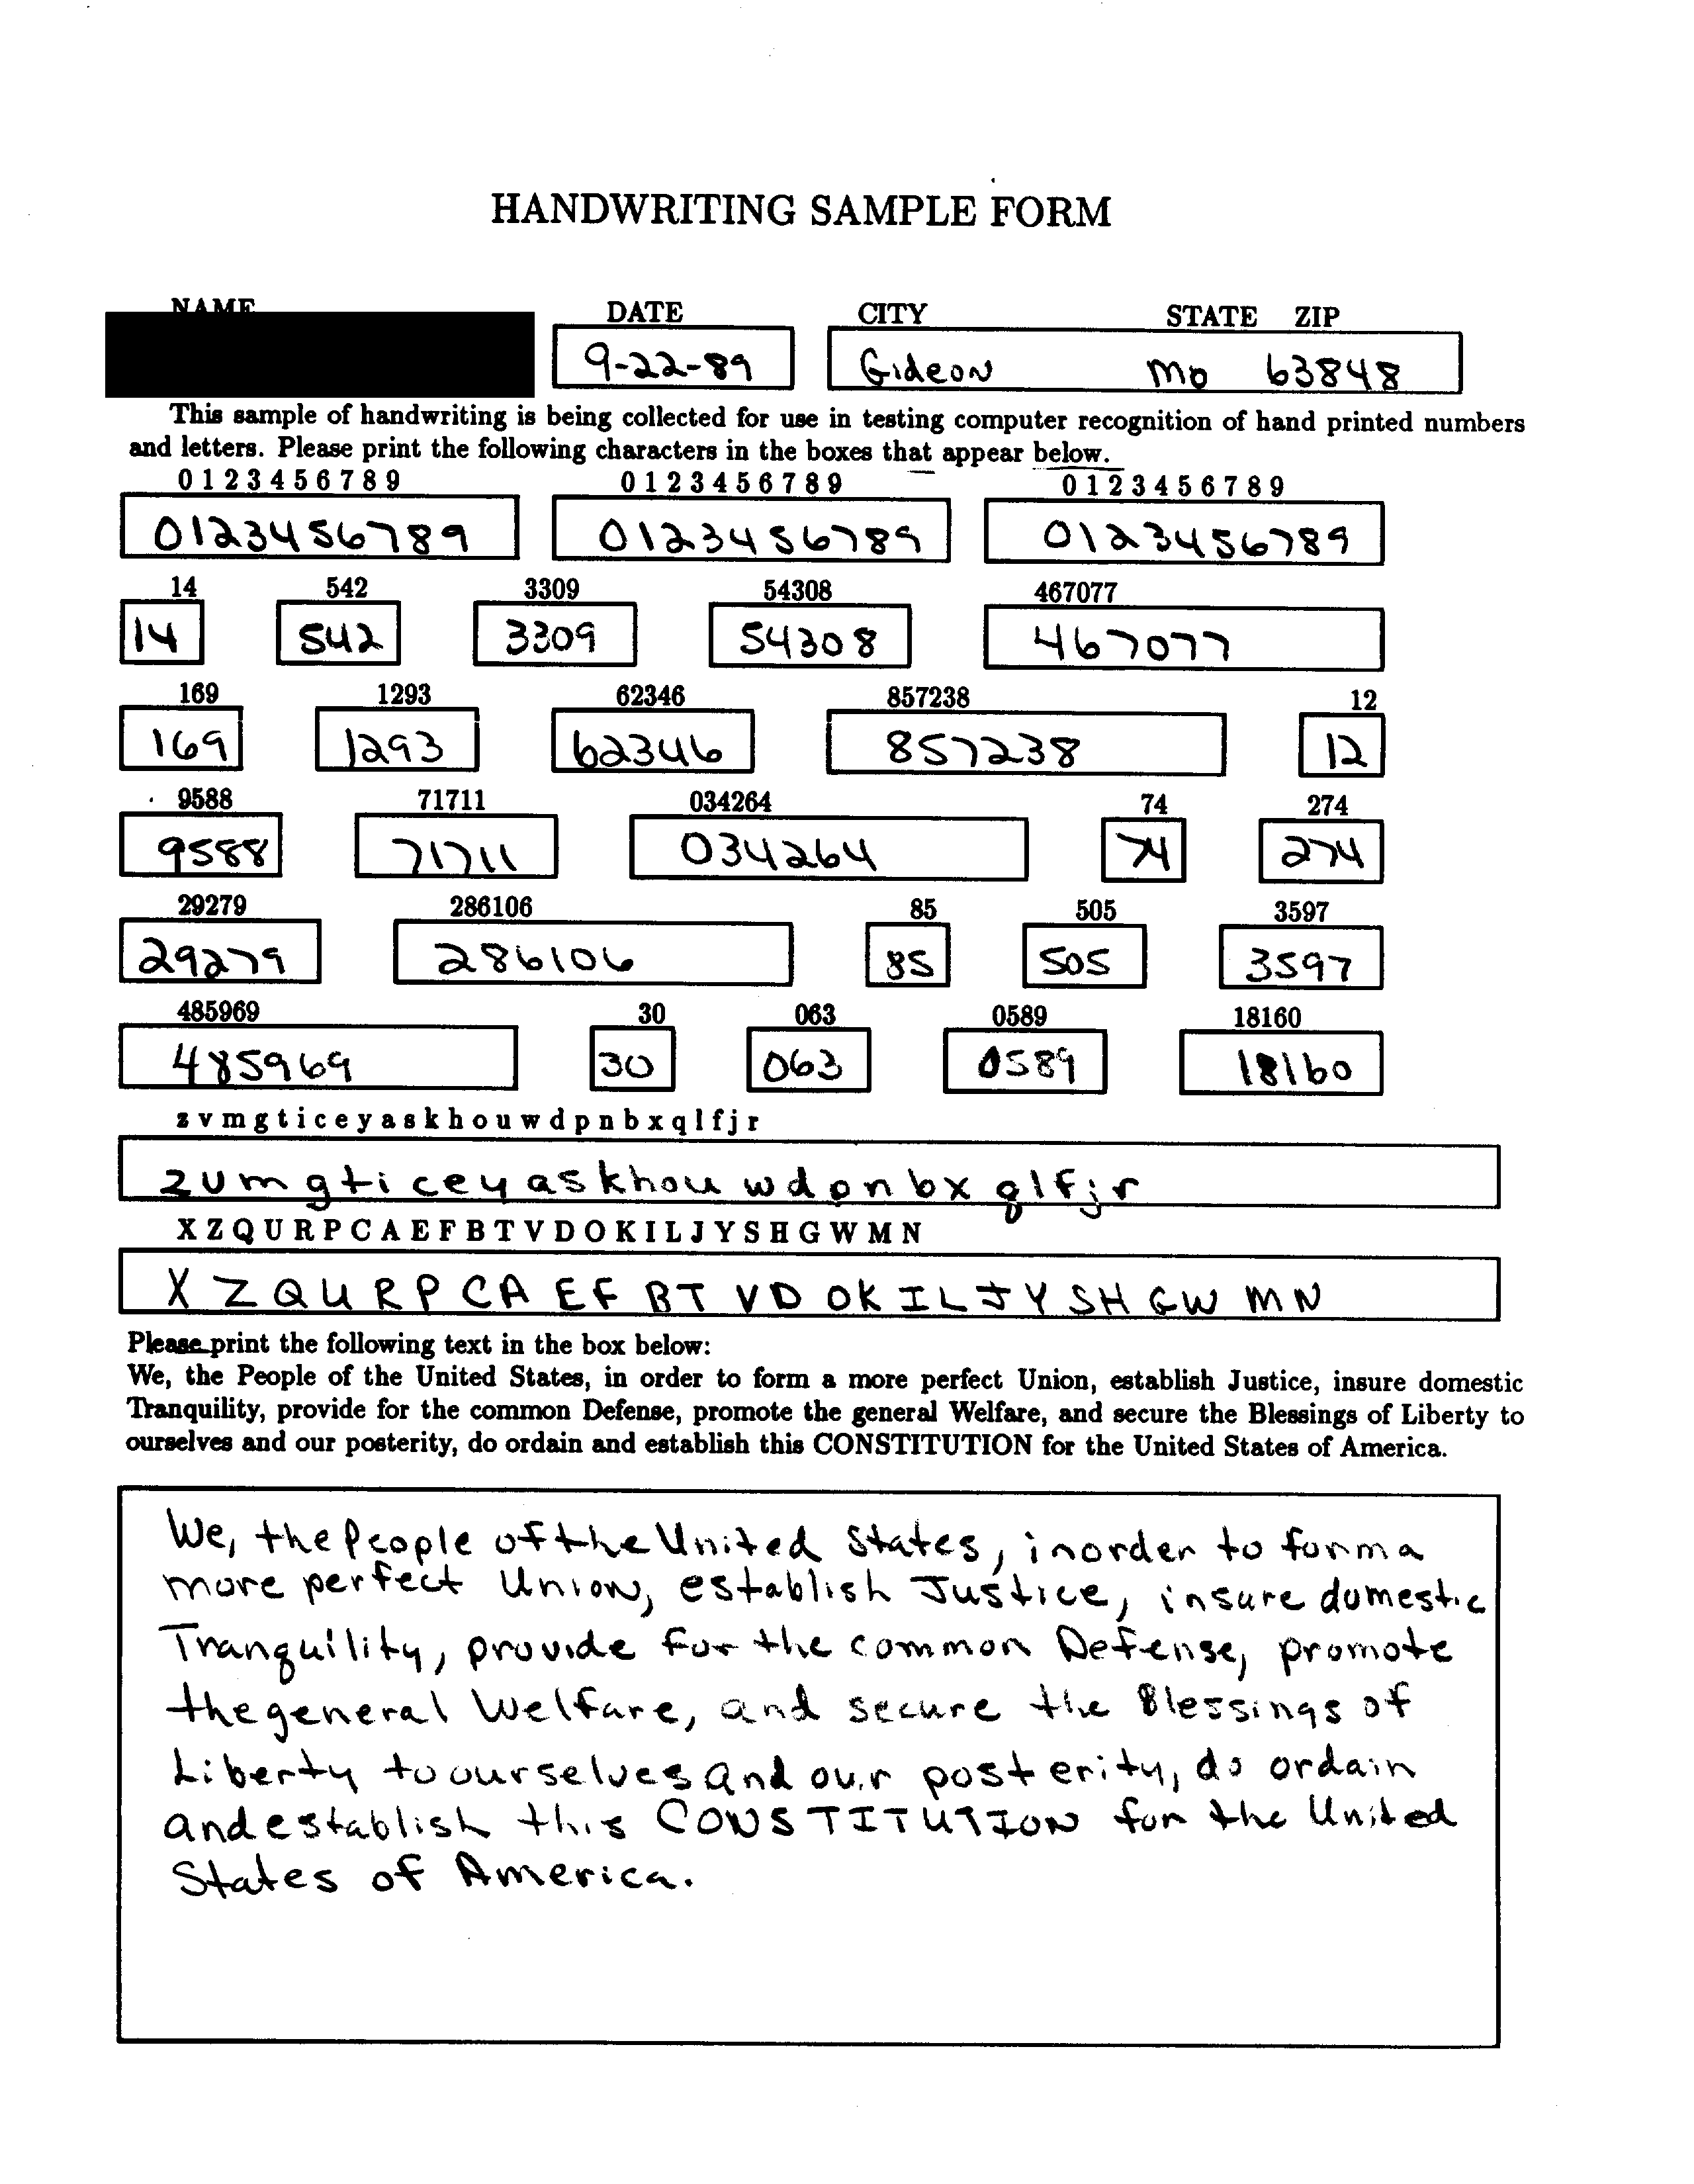 HANDWRITING SAMPLE FORM
NAME DATE CITY STATE ZIP
9-22-89 Gideon Mo 63848
This sample of handwriting is being collected for use in testing computer recognition of hand printed numbers
and letters. Please print the following characters in the boxes that appear below.
0 1 2 3 4 5 6 7 8 9 0 1 2 3 4 5 6 7 8 9 0 1 2 3 4 5 6 7 8 9
0123456789 0123456789 0123456789
14 542 3309 54308 467077
14 542 3309 54308 467077
169 1293 62346 857238 12
169 1293 62346 857238 12
9588 71711 034264 74 274
9588 71711 034264 74 274
29279 286106 85 505 3597
29279 286106 85 505 3597
485969 30 063 0589 18160
485969 30 063 0589 18160
z v m g t i c e y a s k h o u w d p n b x q l f j r
z v m g t i c e y a s k h o u w d p n b x q l f j r
X Z Q U R P C A E F B T V D O K I L J Y S H G W M N
X Z Q U R P C A E F B T V D O K I L J Y S H G W M N
Please print the following text in the box below:
We, the People of the United States, in order to form a more perfect Union, establish Justice, insure domestic
Tranquility, provide for the common Defense, promote the general Welfare, and secure the Blessings of Liberty to
ourselves and our posterity, do ordain and establish this CONSTITUTION for the United States of America.
We, the People of the United States, in order to form a
more perfect Union, establish Justice, insure domestic
Tranquility, provide for the common Defense, promote
the general Welfare, and secure the Blessings of
Liberty to ourselves and our posterity, do ordain
and establish this CONSTITUTION for the United
States of America.